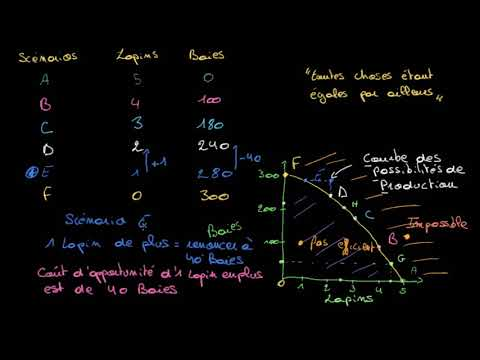 Scénarios Lapins Baies
A 5 0
B 4 100
C 3 180
D 2 240
E 1 280
F 0 300
+1 -40
Scénario E
1 Lapin de plus = renoncer à
40 Baies
Baies
Coût d'opportunité d'1 Lapin en plus
est de 40 Baies
"toutes choses étant
égales par ailleurs"
Courbe des
possibilités de
Production
F
300
E
D
200
H
C
100
pas efficient
B
Impossible
G
A
0 1 2 3 4 5
Lapins